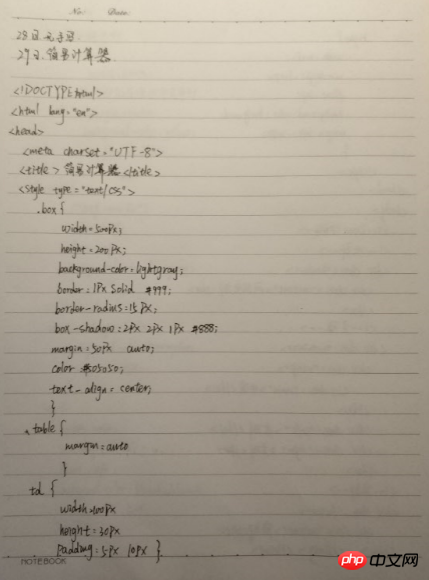 No. Date.
28日无手写
29日.简易计算器.
<!DOCTYPE html>
<html lang="en">
<head>
<meta charset="UTF-8">
<title>简易计算器</title>
<style type="text/css">
.box{
width:500px;
height:200px;
background-color:lightgray;
border:1px solid #999;
border-radius:15px;
box-shadow:2px 2px 1px #888;
margin:50px auto;
color:#505050;
text-align:center;
}
.table{
margin:auto
}
td {
width:100px
height:30px
padding:5px 10px }
NOTEBOOK
php 中文网